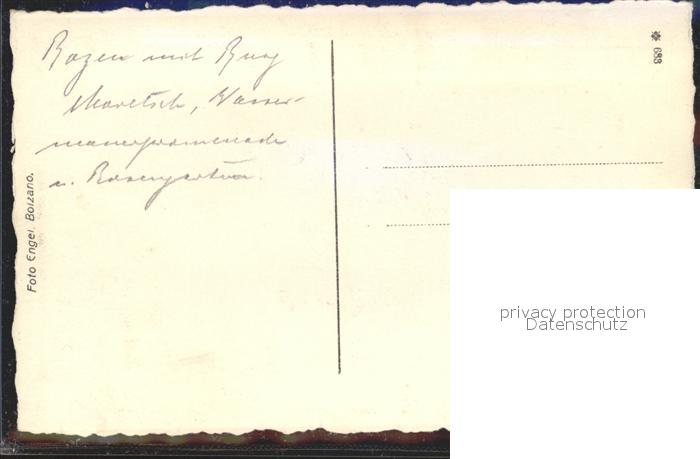 Bozen mit Burg
Maretsch, Wasser-
mauerpromenade
u. Rosengarten.
Foto Engel, Bolzano.
683
privacy protection
Datenschutz